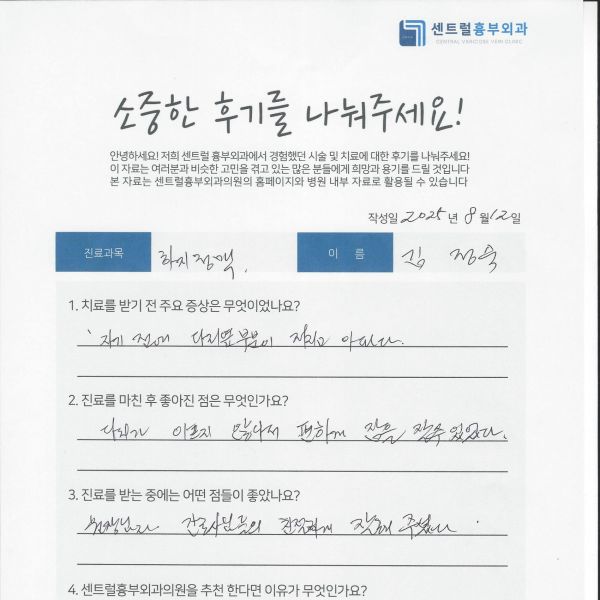 센트럴흉부외과
CENTRAL VARICOSE VEIN CLINIC
소중한 후기를 나눠주세요!
안녕하세요! 저희 센트럴 흉부외과에서 경험했던 시술 및 치료에 대한 후기를 나눠주세요!
이 자료는 여러분과 비슷한 고민을 겪고 있는 많은 분들에게 희망과 용기를 드릴 것입니다
본 자료는 센트럴흉부외과의원의 홈페이지와 병원 내부 자료로 활용될 수 있습니다
작성일 2025 년 8 월 12 일
진료과목 하지정맥. 이 름 김 정숙
1. 치료를 받기 전 주요 증상은 무엇이었나요?
자기 전에 다리 부분이 저리고 아프다.
2. 진료를 마친 후 좋아진 점은 무엇인가요?
다리가 아프지 않아서 편하게 잠을 잘수 있었다.
3. 진료를 받는 중에는 어떤 점들이 좋았나요?
원장님과 간호사님들의 친절하게 잘해 주셨다
4. 센트럴흉부외과의원을 추천 한다면 이유가 무엇인가요?